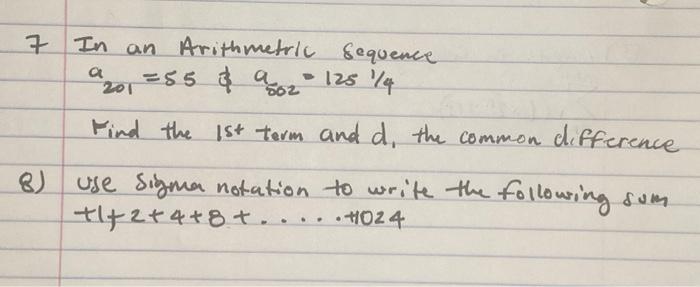 7 In an Arithmetric Sequence
a 201 = 55 & a 502 = 125 1/4
Find the 1st term and d, the common difference
8) Use Sigma notation to write the following sum
+1+2+4+8+......+1024